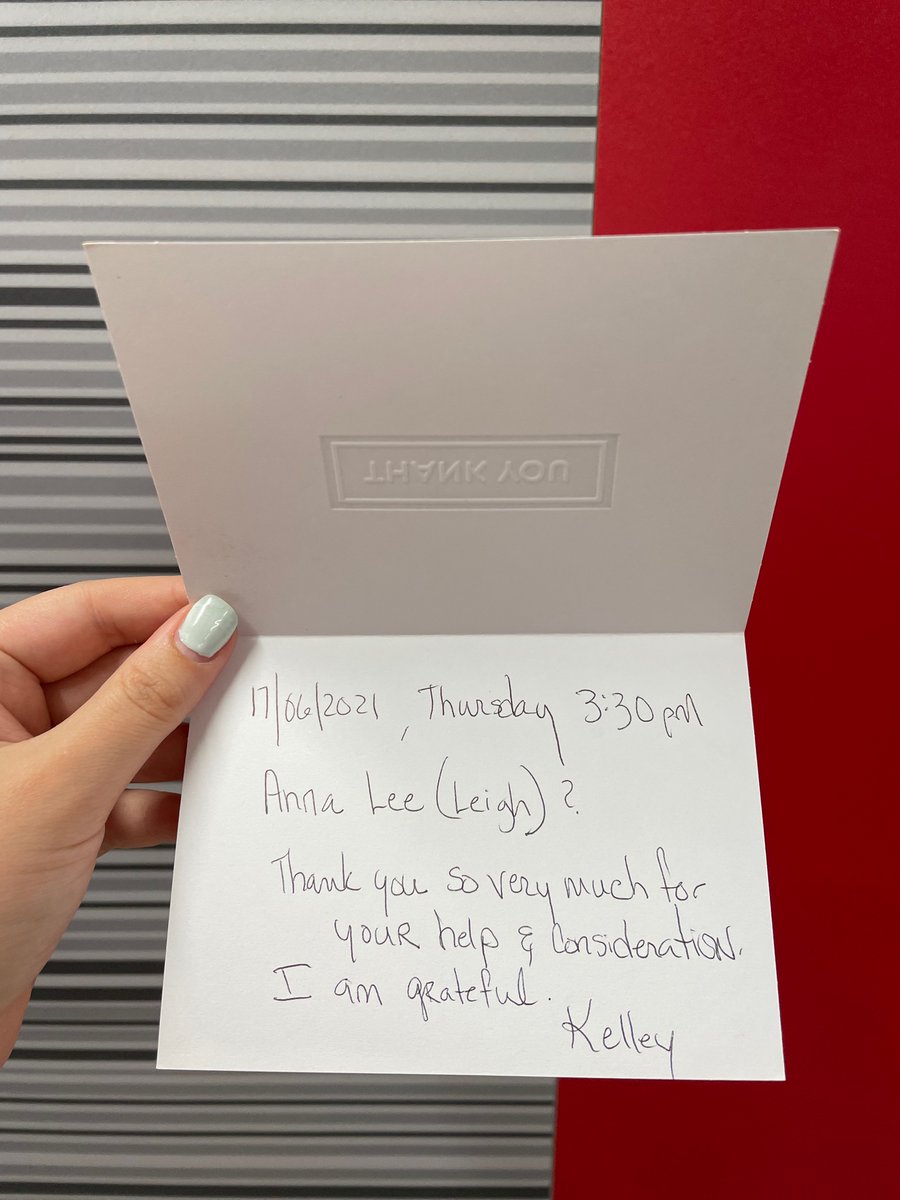 THANK YOU
17/06/2021, Thursday 3:30pm
Anna Lee (Leigh)?
Thank you so very much for
your help & consideration.
I am grateful.
Kelley